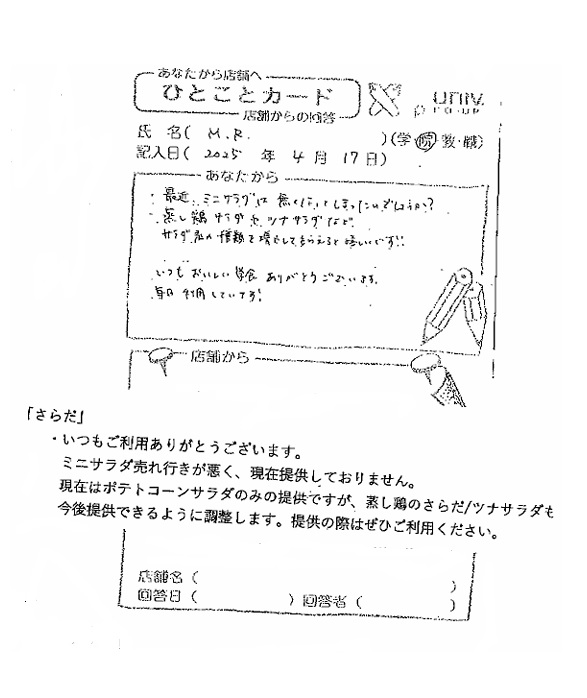 あなたから店舗へ
ひとことカード
店舗からの回答
univ.
CO-OP
氏 名( M.R. )(学・院・教・職)
記入日( 2025 年 4 月 17 日)
あなたから
・最近、ミニサラダは無くなってしまったのでしょうか?
・蒸し鶏サラダやツナサラダなど、
サラダ類の種類を増やしてもらえると嬉しいです!!
いつもおいしい学食ありがとうございます。
毎日利用しています!
店舗から
「さらだ」
・いつもご利用ありがとうございます。
ミニサラダ売れ行きが悪く、現在提供しておりません。
現在はポテトコーンサラダのみの提供ですが、蒸し鶏のさらだ/ツナサラダも
今後提供できるように調整します。提供の際はぜひご利用ください。
店舗名( )
回答日( )回答者( )